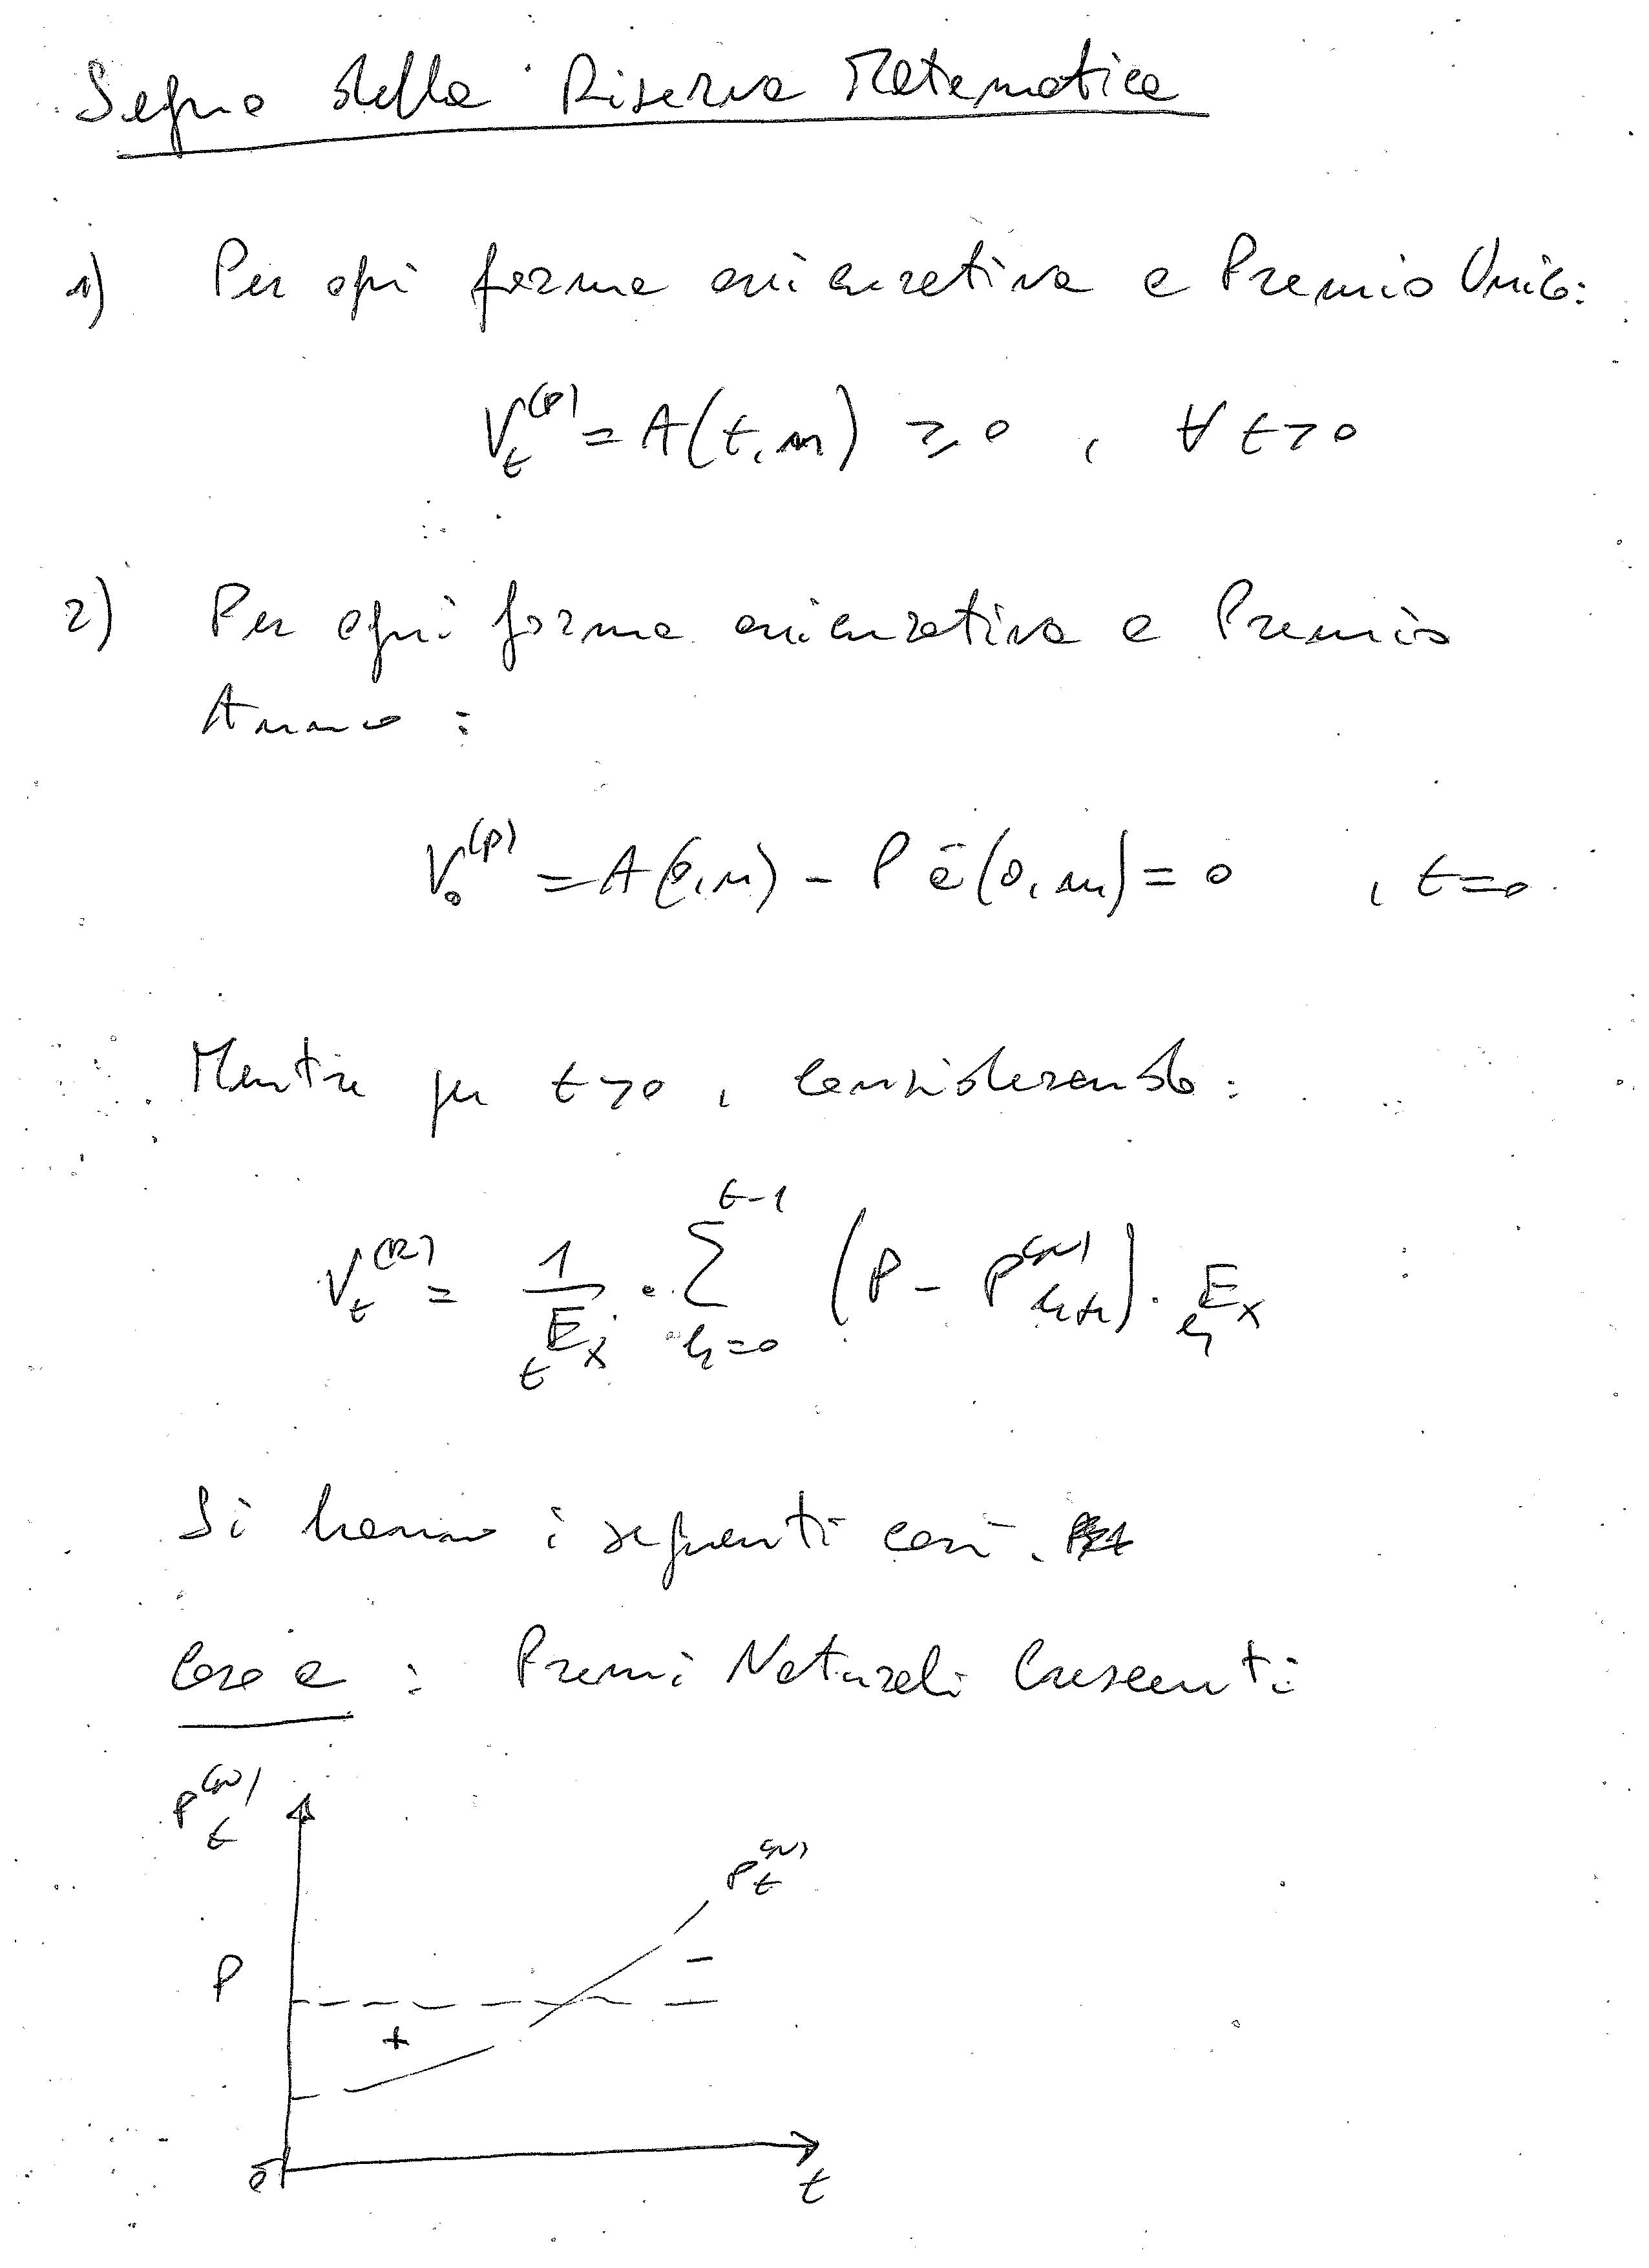 Segno della Riserva Matematica
1) Per ogni forma assicurativa a Premio Unico:
V_t^(P) = A(t, m) ≥ 0 , ∀ t > 0
2) Per ogni forma assicurativa a Premio
Annuo :
V_0^(P) = A(0, m) - P ä(0, m) = 0 , t = 0
Mentre per t > 0 , considerando :
V_t^(R) = 1/_tE_x · Σ_{h=0}^{t-1} (P - P^(N)) · _hE_x
Si hanno i seguenti casi.
Caso a : Premi Naturali Crescenti
P_t^(N)
P_t^(N)
P
-
+
0
t